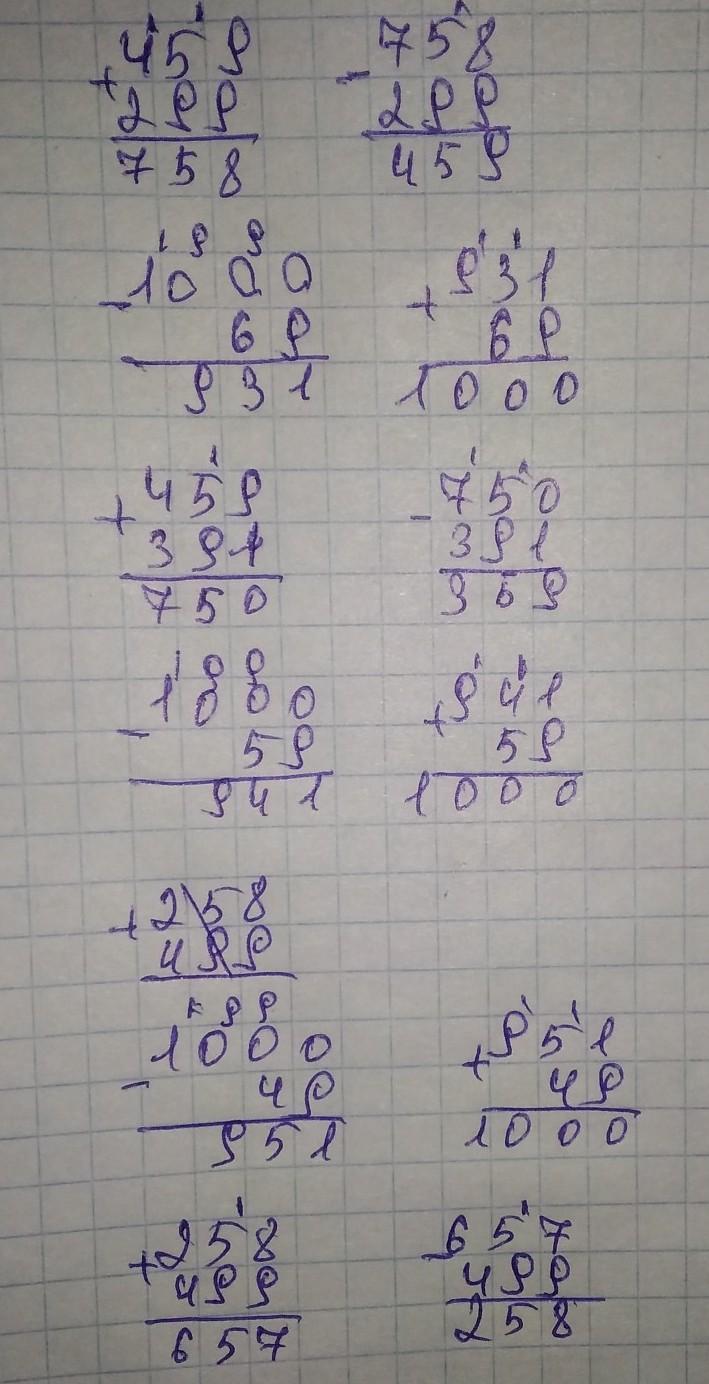 1 1
+459
299
758
1
-758
299
459
1 9 9
-1000
69
931
1 1
+931
69
1000
1
+459
391
750
1 1
-750
391
359
1 9 9
-1000
59
941
1 1
+941
59
1000
+258
499
1 9 9
-1000
49
951
1 1
+951
49
1000
1
+258
499
657
1
-657
499
258